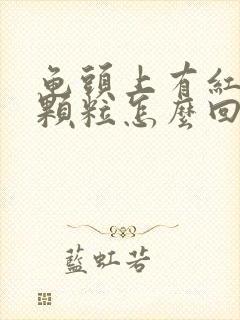 龟頭上有紅
顆粒怎麼回
藍虹若